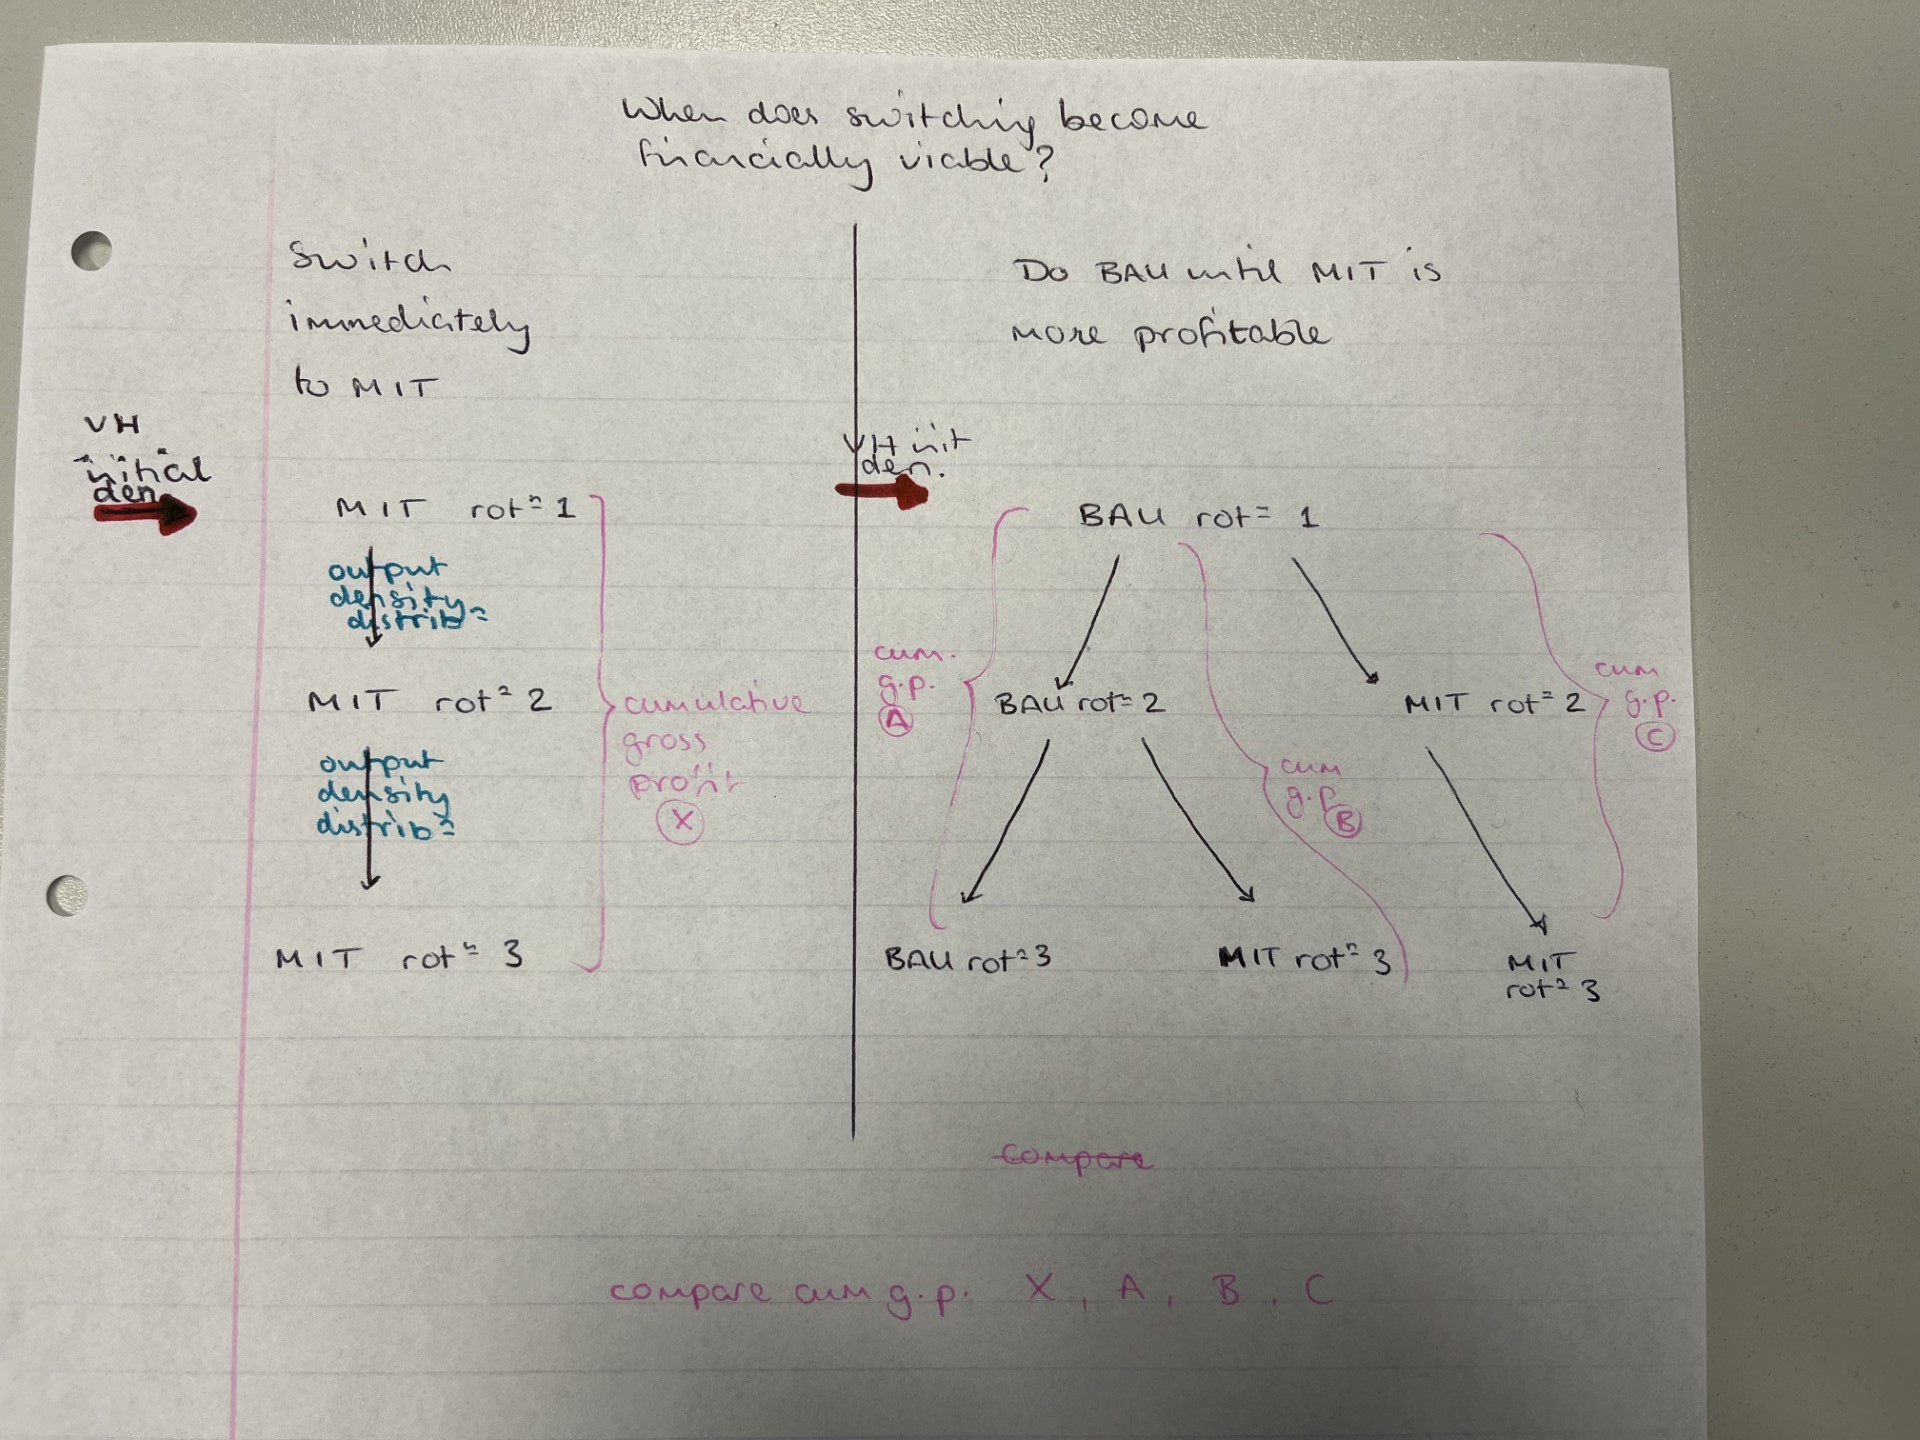 When does switching become
financially viable?
Switch
immediately
to MIT
VH
initial
den.
MIT rotⁿ 1
output
density
distribⁿ
MIT rotⁿ 2
output
density
distribⁿ
MIT rotⁿ 3
cumulative
gross
profit
X
Do BAU until MIT is
more profitable
VH init
den.
BAU rotⁿ 1
cum.
g.p.
A
BAU rotⁿ 2
MIT rotⁿ 2
cum
g.p.
B
cum
g.p.
C
BAU rotⁿ 3
MIT rotⁿ 3
MIT
rotⁿ 3
compare
compare cum g.p. X, A, B, C